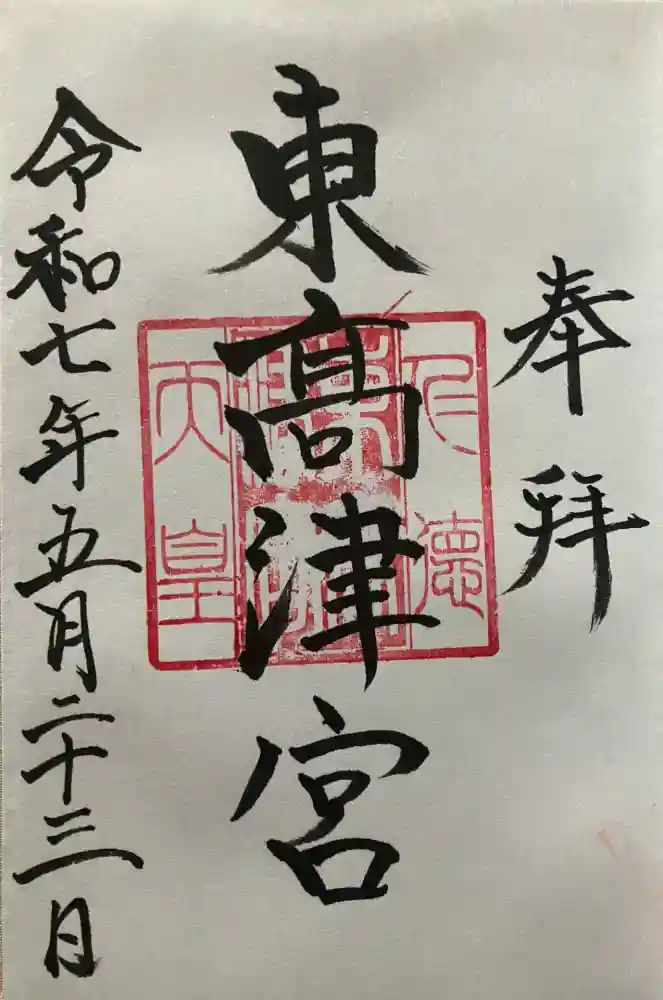 奉拝
東髙津宮
仁徳
天皇
令和七年五月二十三日